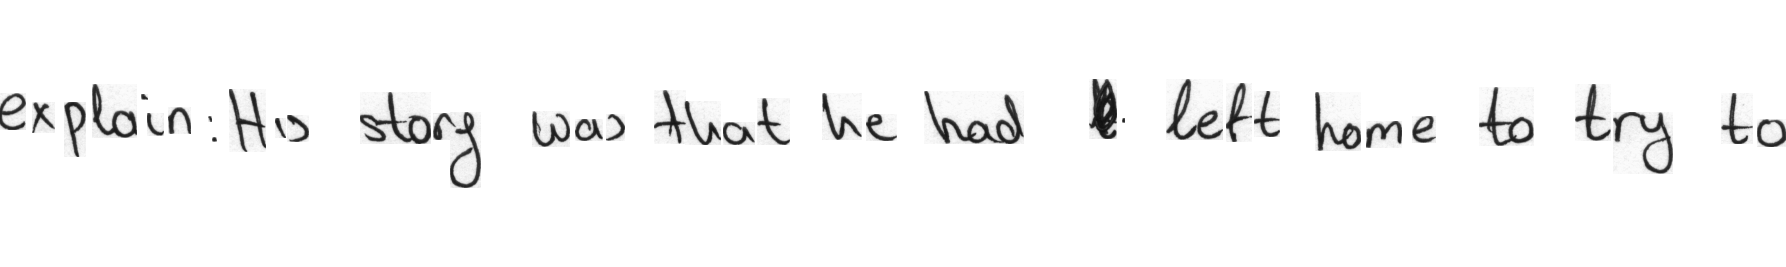 explain: His story was that he had left home to try to